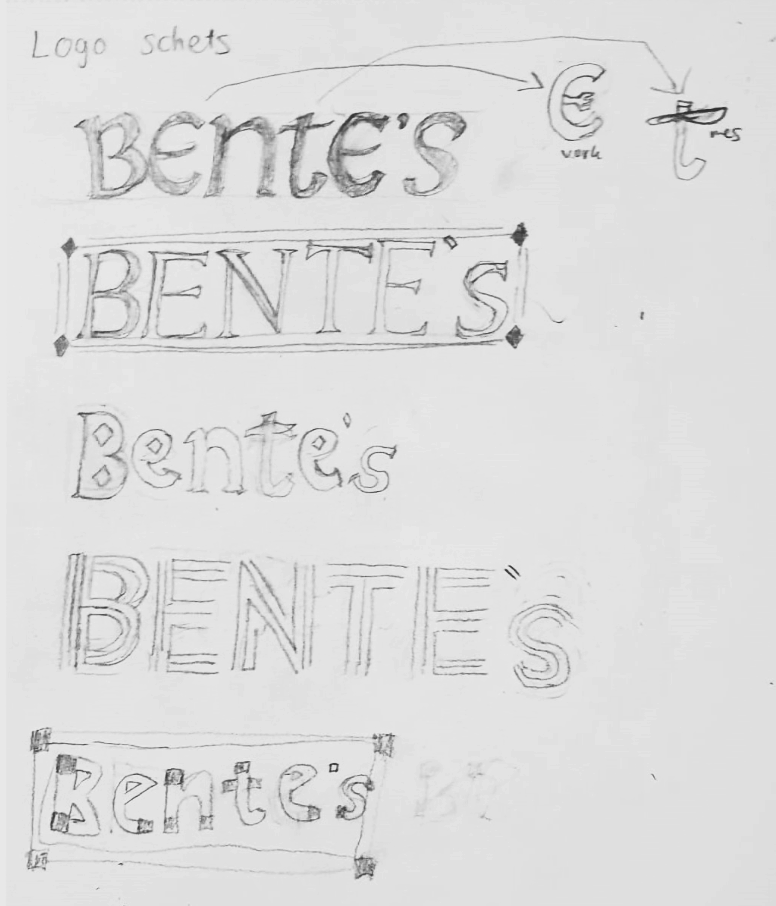 Logo schets
Bente's
vork
mes
BENTE's
Bente's
BENTE's
Bente's